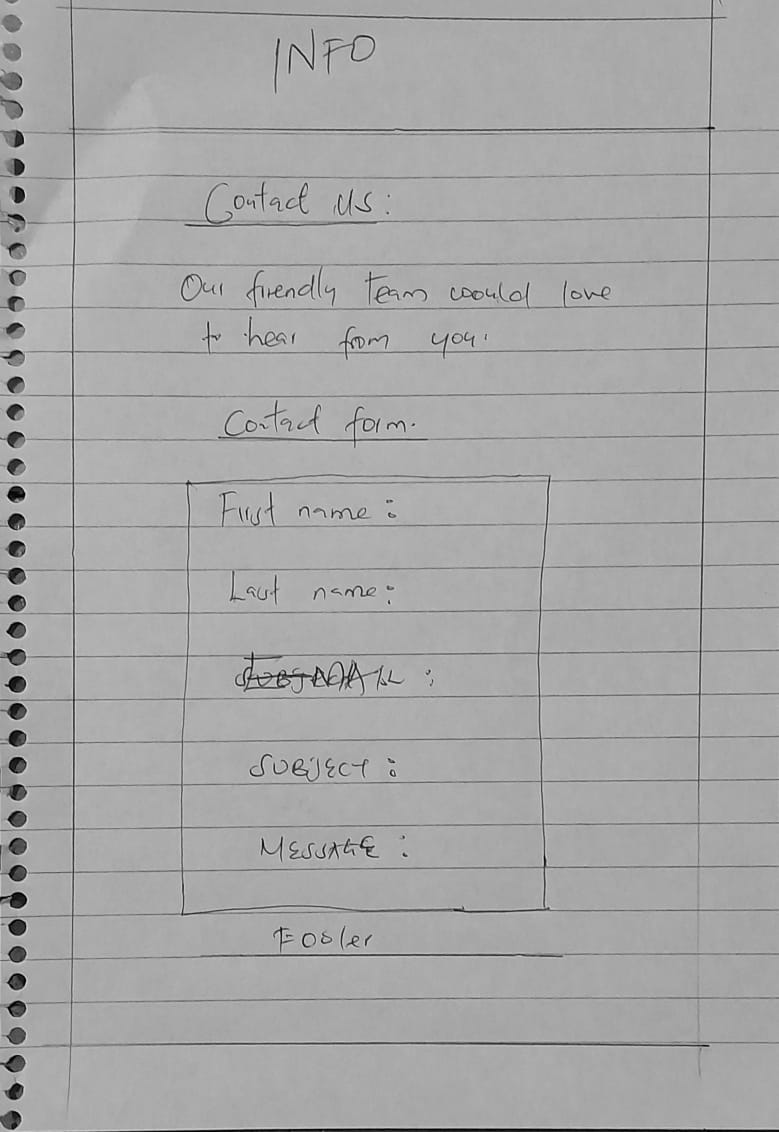 INFO
Contact Us:
Our firendly team would love
to hear from you.
Contact form.
First name:
Last name:
:
SUBJECT:
MESSAGE:
Footer